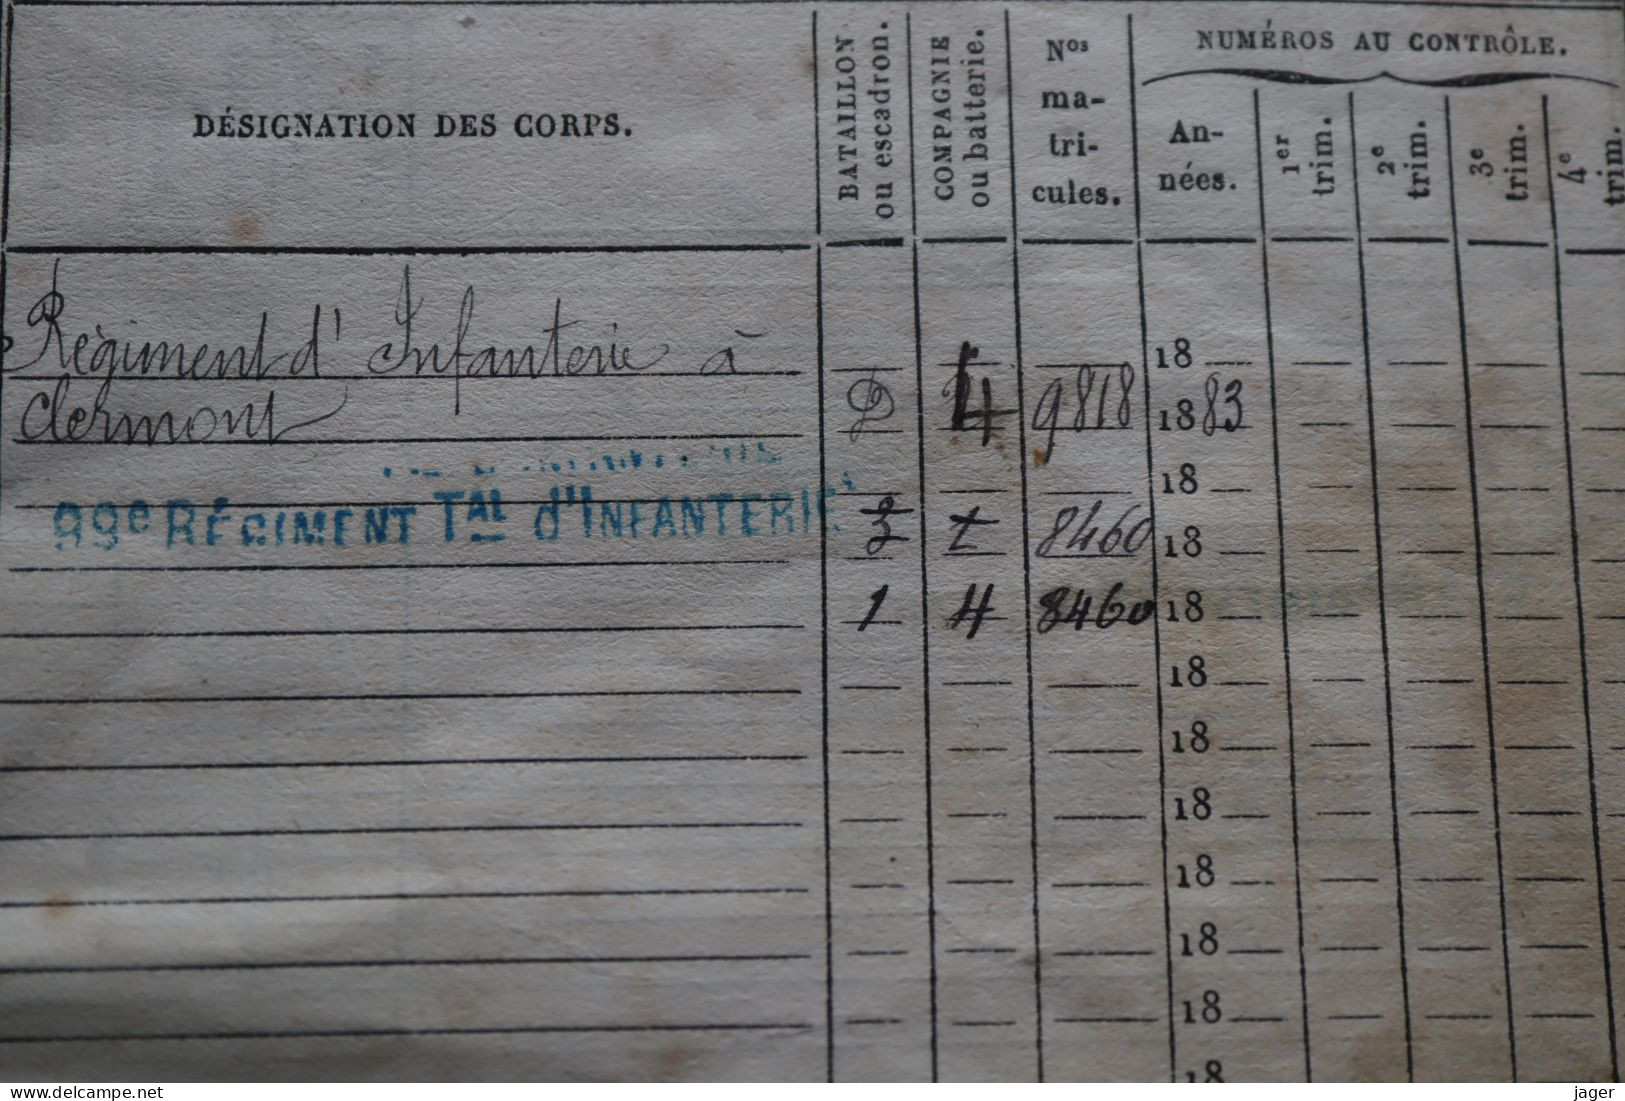 DÉSIGNATION DES CORPS.
BATAILLON
ou escadron.
COMPAGNIE
ou batterie.
Nos
ma-
tri-
cules.
NUMÉROS AU CONTRÔLE.
An-
nées.
1er
trim.
2e
trim.
3e
trim.
4e
trim.
Régiment d'Infanterie à 18
Clermont D 4 9818 1883
18
99e RÉGIMENT Tal d'INFANTERIE 3 8460 18
1 4 8460 18
18
18
18
18
18
18
18
delcampe.net
jager